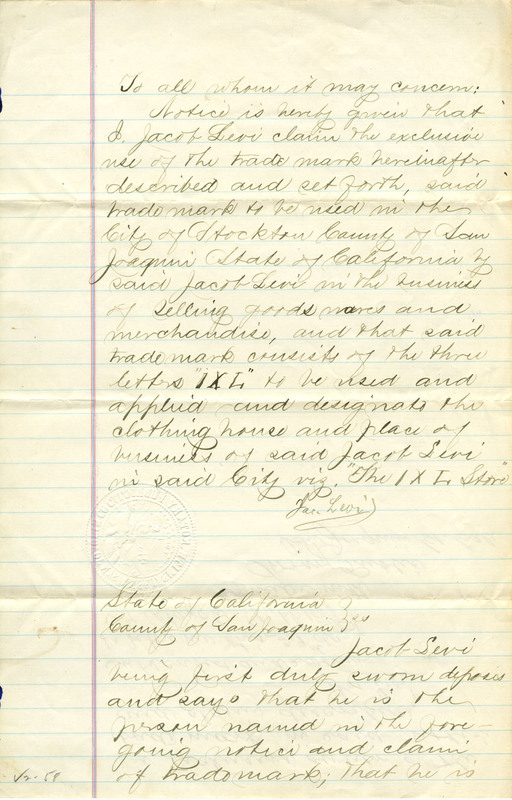 To all whom it may concern:
Notice is hereby given that
I, Jacob Levi claim the exclusive
use of the trade mark hereinafter
described and set forth, said
trade mark to be used in the
City of Stockton County of San
Joaquin State of California by
said Jacob Levi in the business
of selling goods wares and
merchandise, and that said
trade mark consists of the three
letters "IXL" to be used and
applied and designate the
clothing house and place of
business of said Jacob Levi
in said City viz. "The IXL Store"
Jac. Levi
State of California }
County of San Joaquin } ss
Jacob Levi
being first duly sworn deposes
and says that he is the
person named in the fore-
going notice and claim
of trademark; that he is